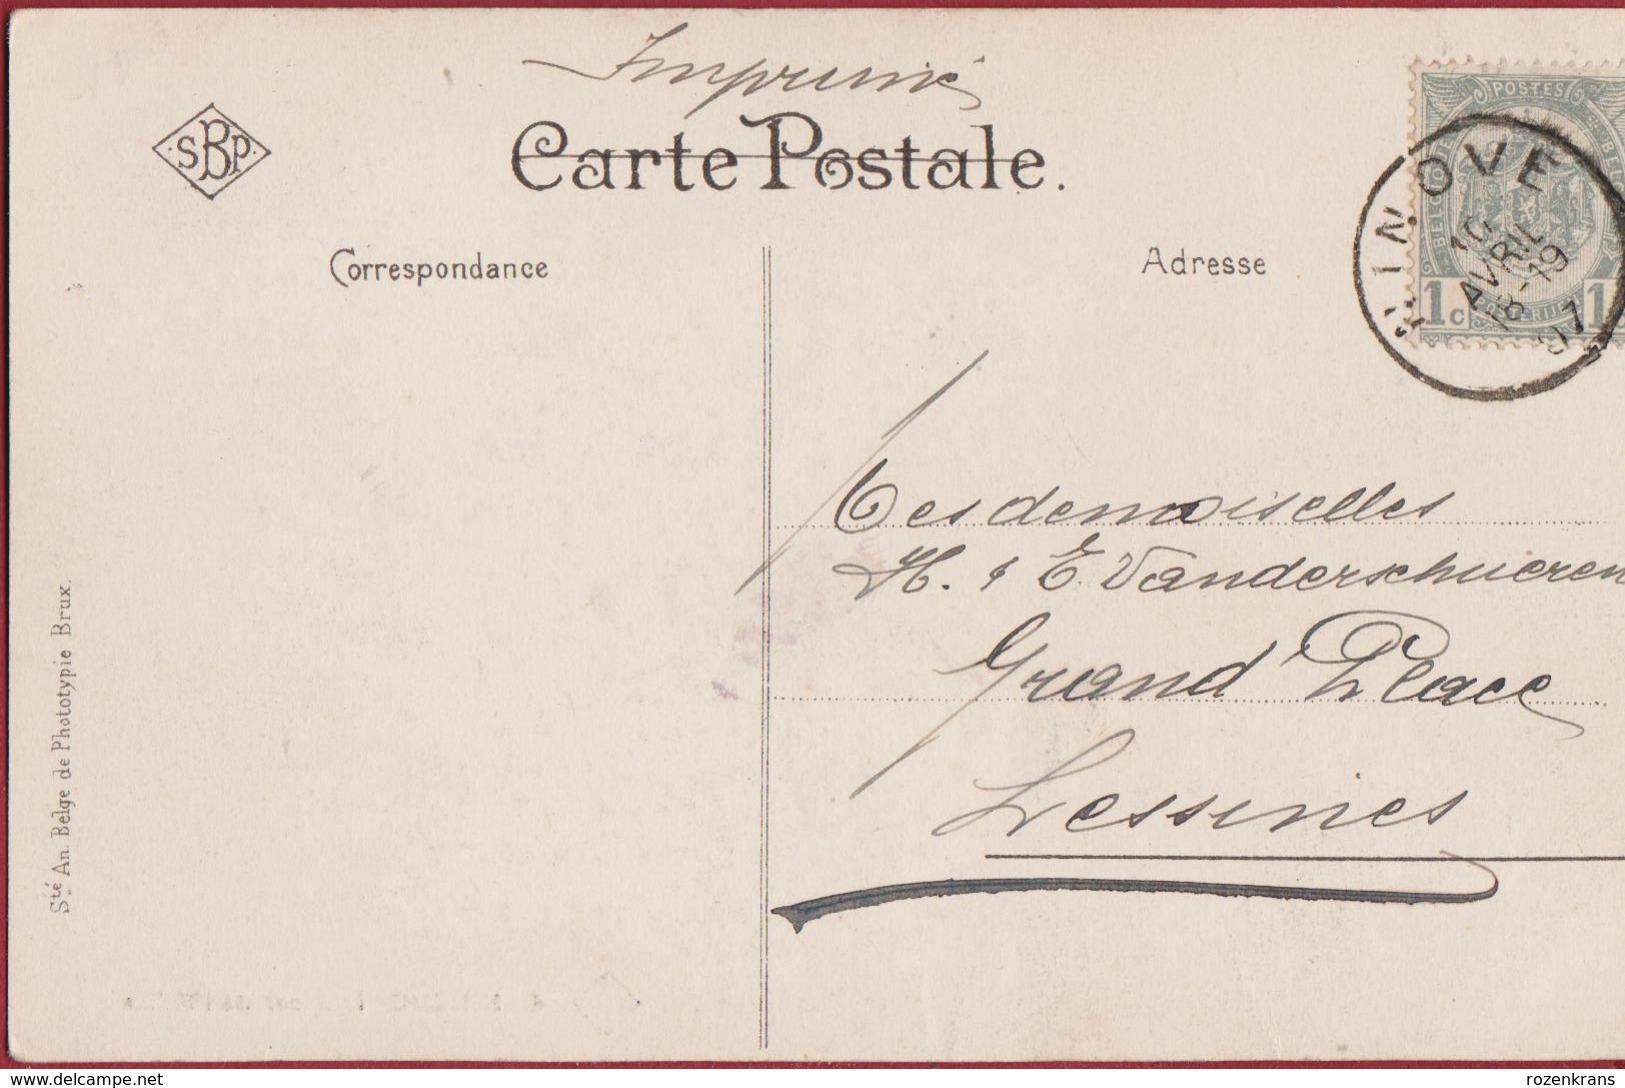 Imprimé
SBP
Carte Postale.
Correspondance
Adresse
POSTES
1c
1
POSTERIJEN
NINOVE
10
AVRIL
18-19
07
Mesdemoiselles
H. & E. Vanderschueren
Grand'Place
Lessines
Sté An. Belge de Phototypie Brux.
delcampe.net
rozenkrans